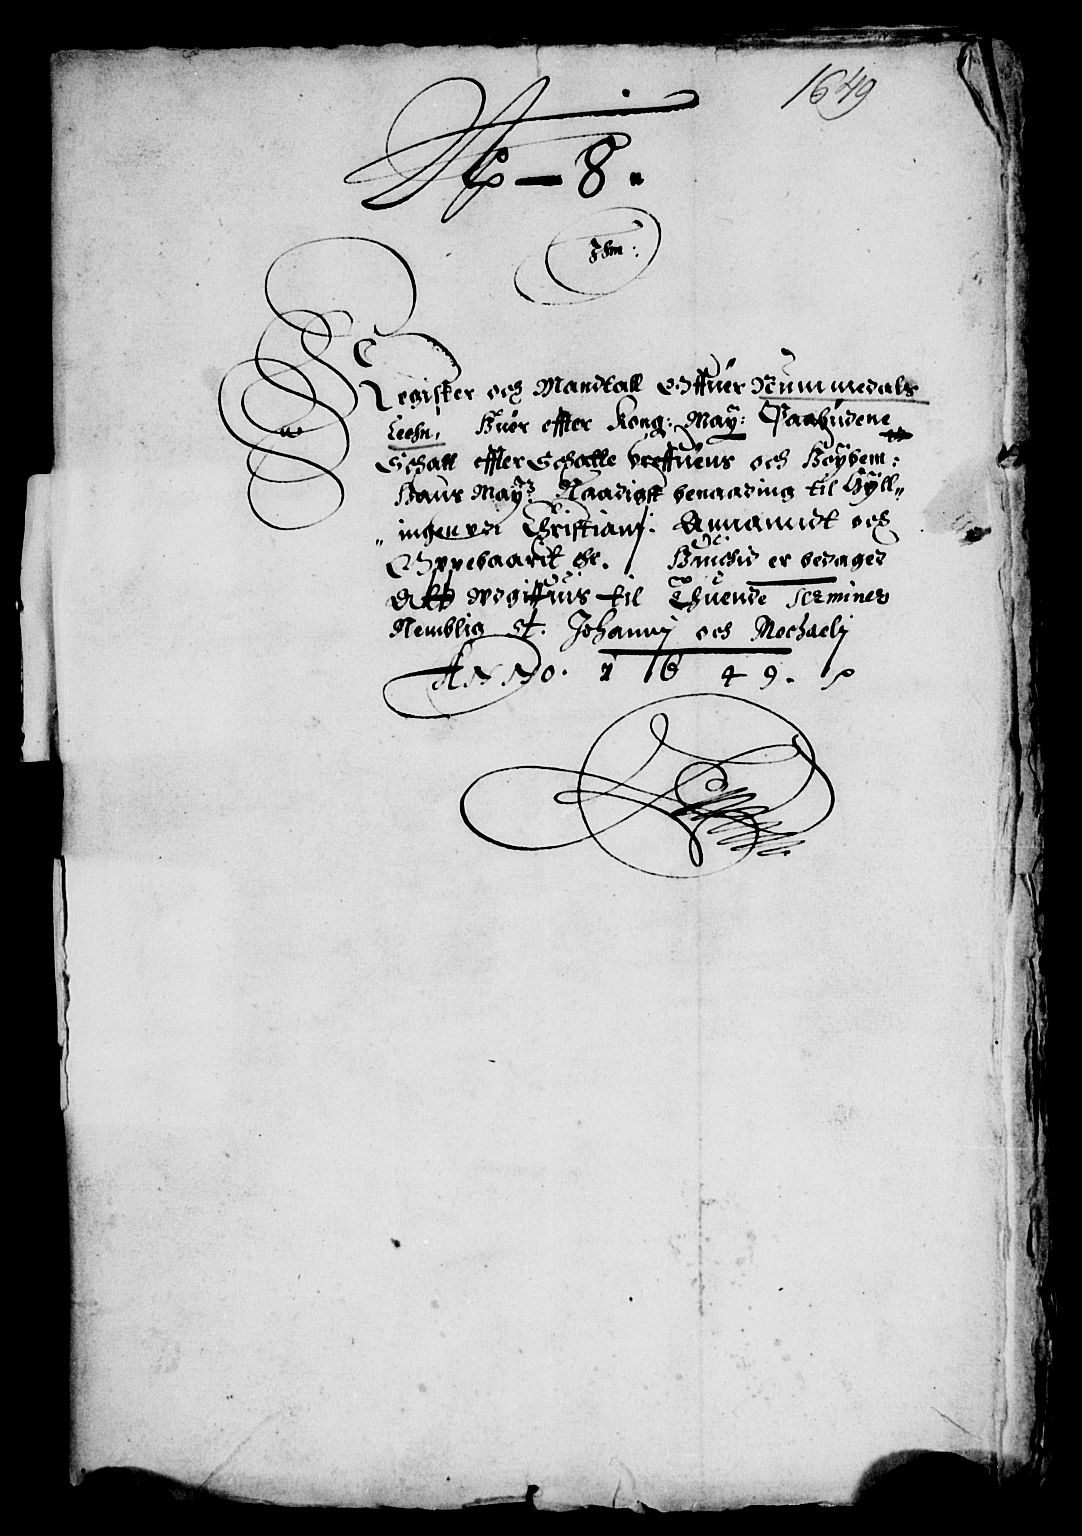 1649
No – 8.
Register och Mandtall Offuer Nummedals
Leehn, Huor effter Kong: May: Paabudene
Schatt effter Schatte breffuens och
Hans May: Naadigst benaading til Hyll„
„ingen Christian Annamidt och
Oppebaaret etc. Huilchid er bedaged
at udgiffuis til Thuende Terminer
Nemblig St. Johannj och Mechaelj
Anno. 1 6 4 9.